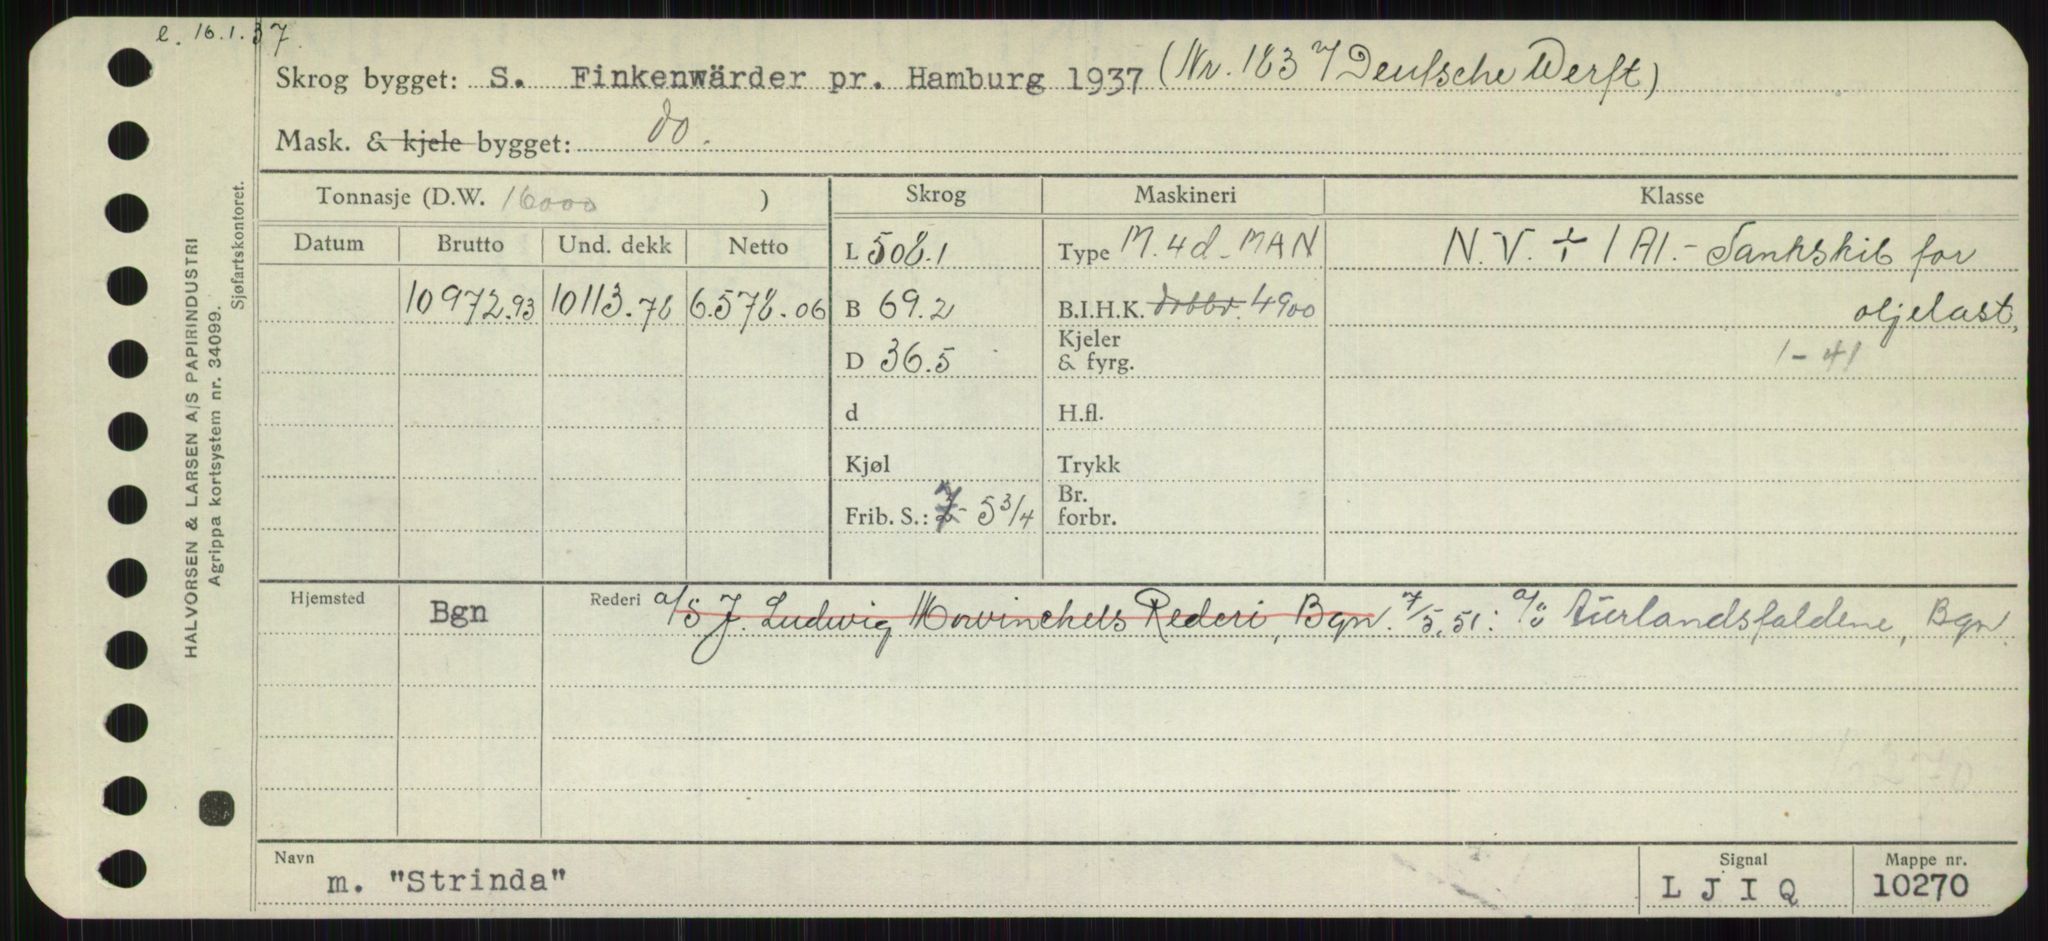 e. 16.1.37.
Skrog bygget: S. Finkenwärder pr. Hamburg 1937 (Nr. 183 / Deutsche Werft)
Mask. & kjele bygget: do.
Tonnasje (D.W. 16000 ) Skrog Maskineri Klasse
Datum Brutto Und. dekk Netto L 508.1 Type M. 4d. MAN N.V. + 1A1.- Tankskib for
10972.93 10113.78 6.578.06 B 69.2 B.I.H.K. 4900 oljelast,
D 36.5 Kjeler & fyrg. 1-41
d H.fl.
Kjøl Trykk
Frib. S.: 7- 5 3/4 Br. forbr.
Hjemsted Bgn Rederi a/s J. Ludwig Mowinckels Rederi, Bgn. 7/5.51: a/s Aurlandsfaldene, Bgn.
Navn m. "Strinda" Signal L J I Q Mappe nr. 10270
HALVORSEN & LARSEN A/S PAPIRINDUSTRI
Agrippa kortsystem nr. 34099.
Sjøfartskontoret.